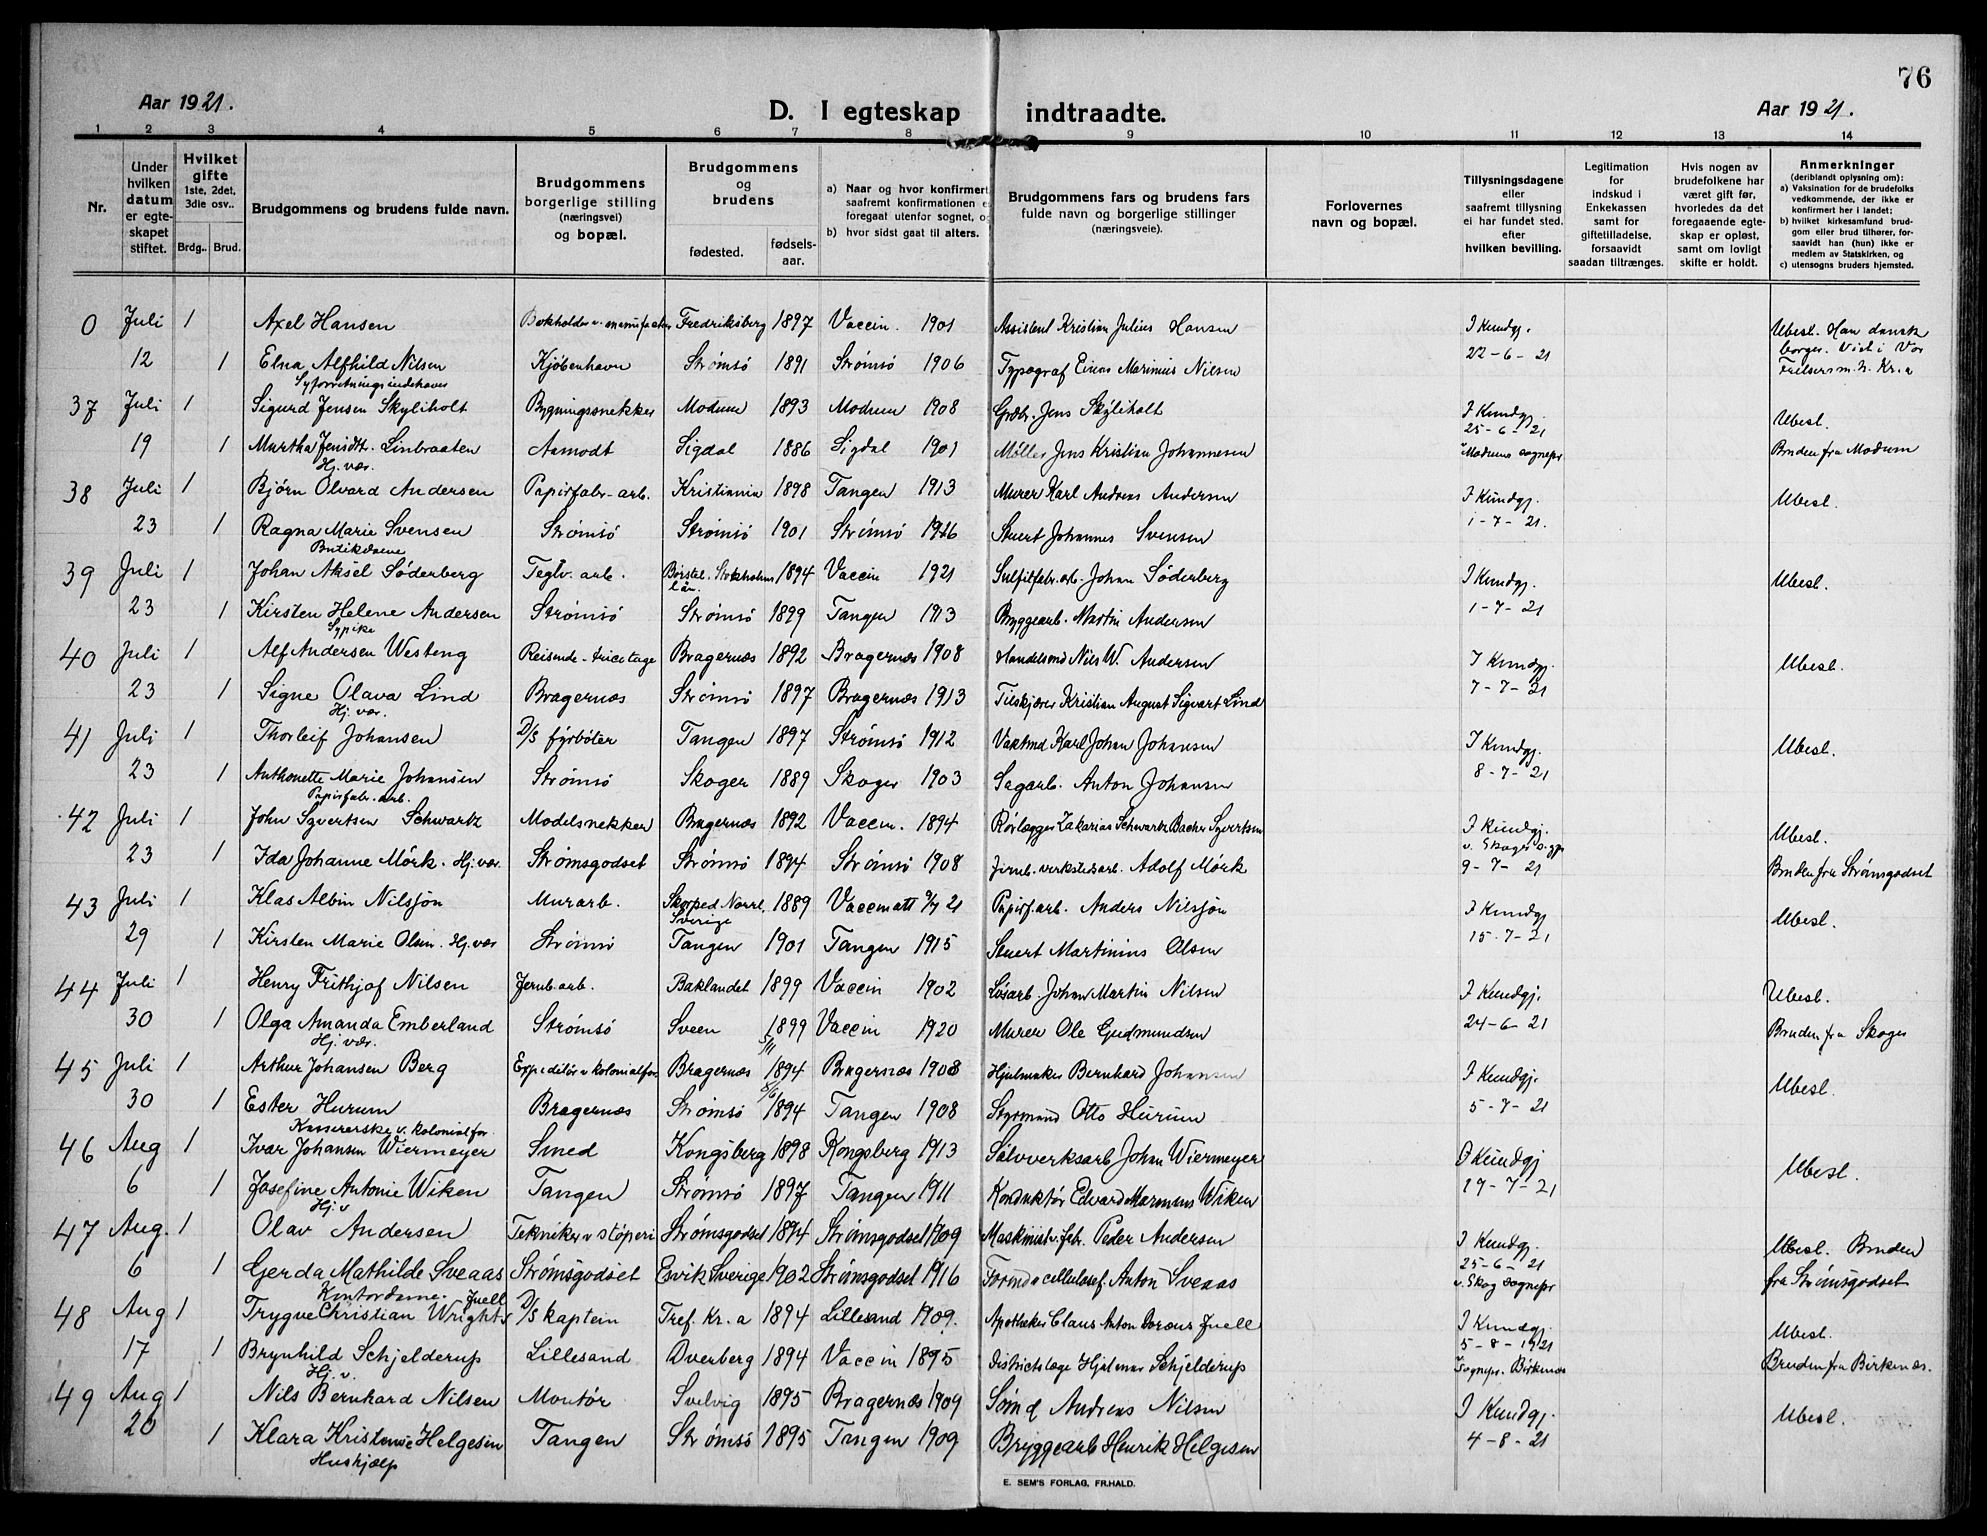 76
Aar 1921.
D. I egteskap indtraadte.
Aar 1921.
1 2 3 4 5 6 7 8 9 10 11 12 13 14
Nr.
Under hvilken datum er egteskapet stiftet.
Hvilket gifte 1ste, 2det, 3die osv.. Brdg.. Brud.
Brudgommens og brudens fulde navn.
Brudgommens borgerlige stilling (næringsvei) og bopæl.
Brudgommens og brudens fødested. fødselsaar.
a) Naar og hvor konfirmert, saafremt konfirmationen er foregaat utenfor sognet, og
b) hvor sidst gaat til alters.
Brudgommens fars og brudens fars fulde navn og borgerlige stillinger (næringsveie).
Forlovernes navn og bopæl.
Tillysningsdagene eller saafremt tillysning ei har fundet sted. efter hvilken bevilling.
Legitimation for indskud i Enkekassen samt for giftetilladelse, forsaavidt saadan tiltrænges.
Hvis nogen av brudefolkene har været gift før, hvorledes da det foregaaende egteskap er opløst, samt om lovligt skifte er holdt.
Anmerkninger (deriblandt oplysning om):
a) Vaksination for de brudefolks vedkommende, der ikke er konfirmert her i landet;
b) hvilket kirkesamfund brudgom eller brud tilhører, forsaavidt han (hun) ikke er medlem av Statskirken, og
c) utensogns bruders hjemsted.
0 Juli 1 Axel Hansen Fredriksberg 1897 Vaccin. 1901 Assistent Kristian Julius Hansen I Kundgj. Ubesl. Han dansk
12 1 Elna Alfhild Nilsen Kjøbenhavn Strømsö 1891 Strømsö 1906 Typograf Einar Marinius Nilsen 22-6-21 borger. Viet i Vor
Syforretningsindehaver Frelsers m.h. Kr.a
37 Juli 1 Sigurd Jensen Skyliholt Bygningssnekker Modum 1893 Modum 1908 Grdbr. Jens Skyliholt I Kundgj. Ubesl.
19 1 Martha Jensdtr. Linbraaten Aamodt Sigdal 1886 Sigdal 1901 Møller Jens Kristian Johannesen 25-6-21 Bruden fra Modum
Hj. vær. Modums sognepr
38 Juli 1 Bjørn Olvard Andersen Papirfabr-arb. Kristiania 1898 Tangen 1913 Murer Karl Andreas Andersen I Kundgj. Ubesl.
23 1 Ragna Marie Svensen Strømsö Strømsö 1901 Strømsö 1916 Stuert Johannes Svensen 1-7-21.
Butikdame
39 Juli 1 Johan Aksel Søderberg Teglv. arb. Börstel. Stockholms 1894 Vaccin 1921 Sulfitfabr.arb. Johan Søderberg I Kundgj. Ubesl.
län
23 1 Kirsten Helene Andersen Strømsö Strømsö 1899 Tangen 1913 Byggearb. Martin Andersen 1-7-21
Sypike
40 Juli 1 Alf Andersen Westeng Reisende - tricotage Bragernæs 1892 Bragernæs 1908 Handelsmd Nils W. Andersen I Kundgj. Ubesl.
23 1 Signe Olava Lind Bragernæs Strømsö 1897 Bragernæs 1913 Tilskjærer Kristian August Sigvart Lind 7-7-21
Hj. vær.
41 Juli 1 Thorleif Johansen D/S fyrböter Tangen 1897 Strømsö 1912 Vaktmd Karl Johan Johansen I Kundgj. Ubesl.
23 1 Anthonette Marie Johansen Strømsö Skoger 1889 Skoger 1903 Sagarb. Anton Johansen 8-7-21
Papirfabr. arb.
42 Juli 1 John Syvertsen Schwartz Modelsnekker Bragernæs 1892 Vaccin. 1894 Rörlægger Zakarias Schwartz Bacher Syvertsen I Kundgj. Ubesl.
v. Skoger s.gpr
23 1 Ida Johanne Mörk. Hj. vær. Strømsgodset Strømsö 1894 Strømsö 1908 Jernb. verkstedsarb. Adolf Mörk 9-7-21 Bruden fra Strömsgodset
43 Juli 1 Klas Albin Nilsson Murarb. Skorped Norrl. 1889 Vaccinatt 9/7 21 Papirf.arb. Anders Nilsson I Kundgj Ubesl.
Sverige
29 1 Kirsten Marie Olsen. Hj. vær Strømsö Tangen 1901 Tangen 1915 Stuert Martinius Olsen 15-7-21
44 Juli 1 Henry Frithjof Nilsen Jernb.arb. Baklandet 1899 Vaccin 1902 Løsarb. Johan Martin Nilsen I Kundgj. Ubesl.
30 1 Olga Amanda Emberland Strømsö Sveen 1899 Vaccin 1920 Murer Ole Gudmundsen 24-6-21 Bruden fra Skoger
Hj. vær. 5/11
45 Juli 1 Arthur Johansen Berg Expeditör v kolonialfor. Bragernæs 1894 Bragernæs 1908 Hjulmaker Bernhard Johansen I Kundgj. Ubesl.
30 1 Ester Hurum Bragernæs Strømsö 1894 Tangen 1908 Styrmand Otto Hurum 5-7-21
Kassererske v. kolonialfor.
46 Aug 1 Ivar Johansen Wiermeyer Smed Kongsberg 1898 Kongsberg 1913 Sølvverksarb Johan Wiermeyer I Kundgj Ubesl.
6 1 Josefine Antonie Wiken Tangen Strømsö 1897 Tangen 1911 Konduktör Edvard Wiken 19-7-21
Hj. v
47 Aug. 1 Olav Andersen Tekniker v støperi Strømsgodset 1894 Strømsgodset 1909 Maskinist v. fabr. Peder Andersen I Kundgj. Ubesl. Bruden
6 1 Gerda Mathilde Sveaas Strømsgodset Esvik Sverige 1902 Strømsgodset 1916 Formd v cellulosef Anton Sveaas 25-6-21 fra Strömsgodset
Kontordame. v. Skog sognepr
48 Aug 1 Trygve Christian Wright Juell D/S kaptein Tref. Kr.a 1894 Lillesand 1909. Apotheker Claus Anton Juell I Kundgj. Ubesl.
17 1 Brynhild Schjelderup Lillesand Dverberg 1894 Vaccin 1895 Distriktslæge Hjalmar Schjelderup 5-8-1921 Bruden fra Birkenæs.
Hj. v. Sognepr. Birkenæs
49 Aug 1 Nils Bernhard Nilsen Montör Svelvig 1895 Bragernæs 1909 Sømd Andreas Nilsen I Kundgj. Ubesl.
20 1 Klara Kristense Helgesen Tangen Strømsö 1895 Tangen 1909 Bryggearb Henrik Helgesen 4-8-21
Hushjælp
E. SEM'S FORLAG, FR.HALD.